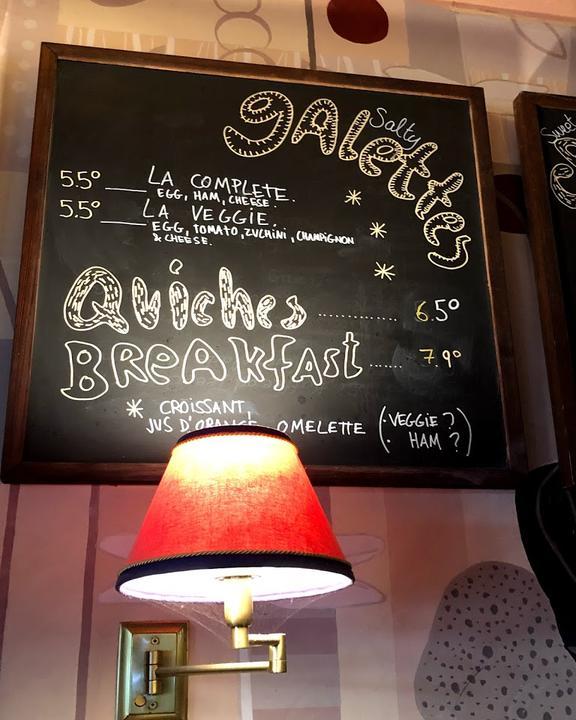 Salty
gALettes
5.5° LA COMPLETE.
EGG, HAM, CHEESE
5.5° LA VEGGIE.
EGG, TOMATO, ZUCHINI, CHAMPIGNON
& CHEESE.
Quiches ............ 6.5°
BReAkfAst ...... 7.9°
* CROISSANT,
JUS D'ORANGE, OMELETTE (·VEGGIE?
· HAM?)
Sweet